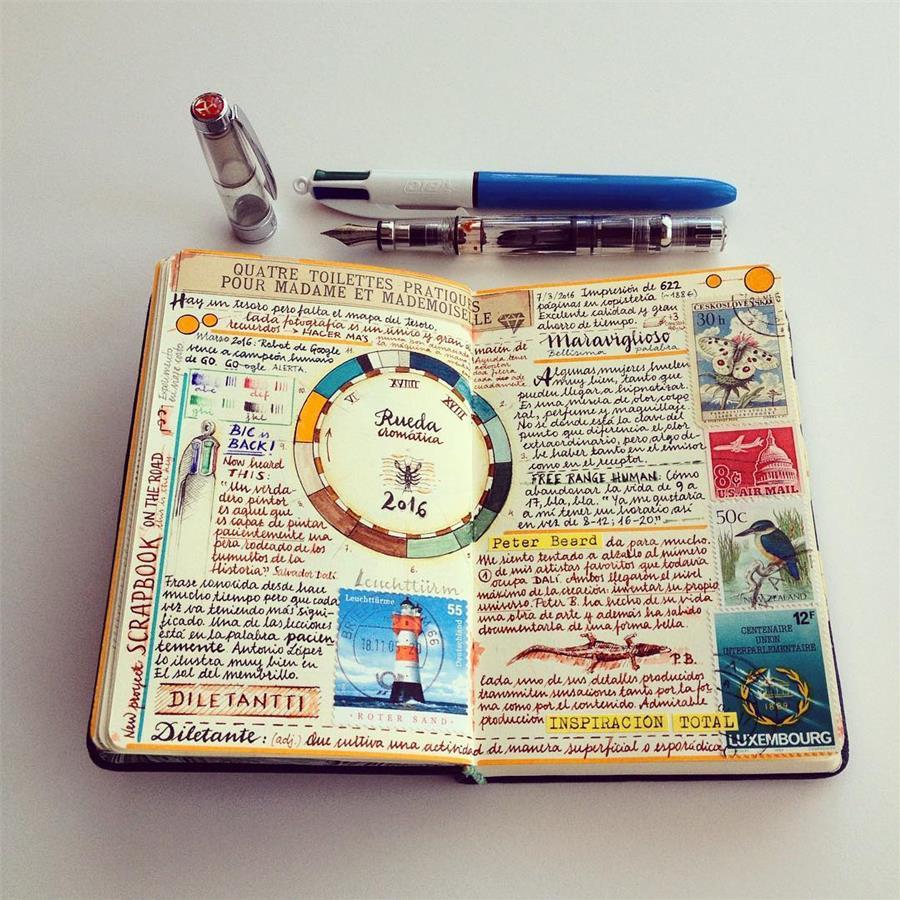 BIC
QUATRE TOILETTES PRATIQUES
POUR MADAME ET MADEMOISELLE
Hay un tesoro pero falta el mapa del tesoro.
Cada fotografía es un único y gran
recuerdos → HACER MÁS
Marzo 2016. Robot de Google
vence a campeón humano
de GO. GO-ogle ALERTA.
BIC is
BACK!
Now heard
THIS:
"Un verda-
dero pintor
es aquel que
es capaz de pintar
pacientemente una
pera rodeado de los
tumultos de la
Historia". Salvador Dalí.
Frase conocida desde hace
mucho tiempo pero que cada
vez va teniendo más signi-
ficado. Una de las lecciones
está en la palabra pacien-
temente. Antonio López
lo ilustra muy bien en
El sol del membrillo.
DILETANTTI
Diletante: (adj.) Que cultiva una actividad de manera superficial o esporádica
New project SCRAPBOOK ON THE ROAD
XVIIII
VI
XVIII
Rueda
cromática
2016
Leuchttürm
Leuchttürme
55
Deutschland
18.11.05-20
66
ROTER SAND
7/3/2016 Impresión de 622
páginas en copistería (~188€)
Excelente calidad y gran
ahorro de tiempo.
Maraviglioso
Bellissima palabra
Algunas mujeres huelen
muy bien, tanto que
pueden llegar a hipnotizar.
Es una mezcla de olor corpo-
ral, perfume y maquillaje.
No sé dónde está la clave del
punto que diferencia el olor
extraordinario, pero algo de-
be haber tanto en el emisor
como en el receptor.
FREE RANGE HUMAN. Cómo
abandonar la vida de 9 a
17, bla, bla. "Ya me gustaría
a mí tener un horario así
en vez de 8-12; 16-20"
Peter Beard da para mucho
Me siento tentado a alzarlo al número
1 de mis artistas favoritos que todavía
ocupa DALÍ. Ambos llegaron al nivel
máximo de la creación: inventar su propio
universo. Peter B. ha hecho de su vida
una obra de arte y además ha sabido
documentarla de una forma bella.
P.B.
Cada uno de sus detalles producidos
transmiten sensaciones tanto por la for
ma como por el contenido. Admirable
producción INSPIRACIÓN TOTAL
ČESKOSLOVENSKO
30h
8¢
U.S. AIR MAIL
50c
NEW ZEALAND
12F
CENTENAIRE
UNION
INTERPARLEMENTAIRE
1889
LUXEMBOURG